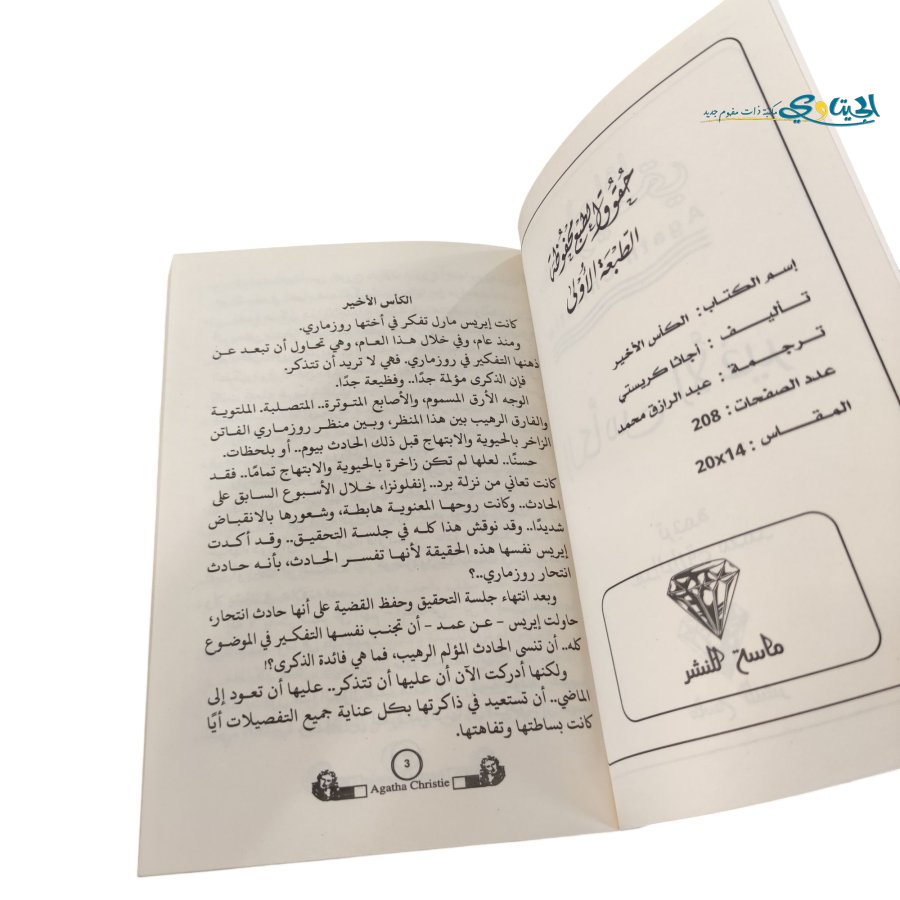 الجيتاوي مكتبة ذات مفهوم جديد
حُقُوقُ الطَّبْعِ مَحْفُوظَة
الطَّبْعَة الأُوْلى
إسم الكتاب : الكأس الأخير
تأليف : أجاثا كريستي
ترجمة : عبد الرازق محمد
عدد الصفحات : 208
المقاس : 14×20
ماسة للنشر
الكأس الأخير
كانت إيريس مارل تفكر في أختها روزماري.
ومنذ عام، وفي خلال هذا العام، وهي تحاول أن تبعد عن
ذهنها التفكير في روزماري. فهي لا تريد أن تتذكر.
فإن الذكرى مؤلمة جدًا.. وفظيعة جدًا.
الوجه الأرق المسموم، والأصابع المتوترة.. المتصلبة. الملتوية
والفارق الرهيب بين هذا المنظر، وبين منظر روزماري الفاتن
الزاخر بالحيوية والابتهاج قبل ذلك الحادث بيوم.. أو بلحظات.
حسنًا.. لعلها لم تكن زاخرة بالحيوية والابتهاج تمامًا.. فقد
كانت تعاني من نزلة برد.. إنفلونزا، خلال الأسبوع السابق على
الحادث.. وكانت روحها المعنوية هابطة، وشعورها بالانقباض
شديدًا.. وقد نوقش هذا كله في جلسة التحقيق.. وقد أكدت
إيريس نفسها هذه الحقيقة لأنها تفسر الحادث، بأنه حادث
انتحار روزماري..؟
وبعد انتهاء جلسة التحقيق وحفظ القضية على أنها حادث انتحار،
حاولت إيريس - عن عمد - أن تجنب نفسها التفكير في الموضوع
كله.. أن تنسى الحادث المؤلم الرهيب، فما هي فائدة الذكرى؟!
ولكنها أدركت الآن أن عليها أن تتذكر.. عليها أن تعود إلى
الماضي.. أن تستعيد في ذاكرتها بكل عناية جميع التفصيلات أيًا
كانت بساطتها وتفاهتها.
3
Agatha Christie